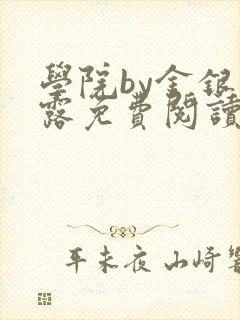 學院by金銀
露免費閱讀
平未夜 山崎響